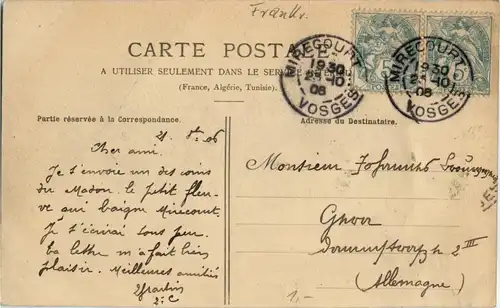 Frankr.
CARTE POSTALE
A UTILISER SEULEMENT DANS LE SERVICE
(France, Algérie, Tunisie).
MIRECOURT
1930
23-10
06
VOSGES
MIRECOURT
1930
23-10
06
VOSGES
Partie réservée à la Correspondance.
Adresse du Destinataire.
21 8bre 06
Cher ami.
Je t'envoie un des coins
du Madon, le petit fleu-
ve qui baigne Mirecourt.
Je t'écrirai sous peu.
ta lettre m'a fait bien
plaisir. Meilleures amitiés
Monsieur Johannes
Gera
2 III
(Allemagne)
1,-